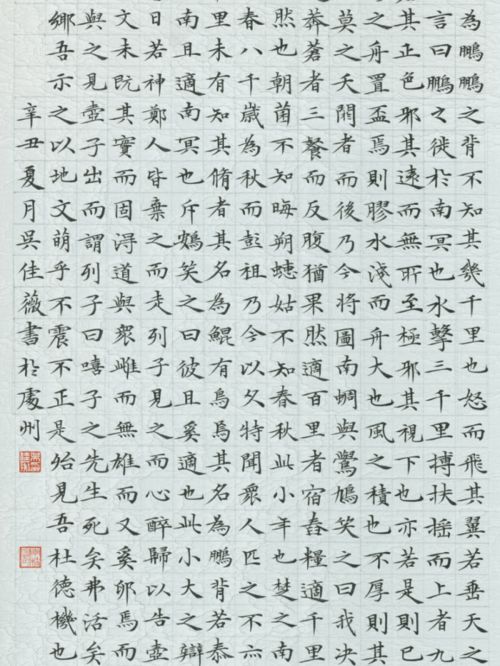 為鵬鵬之背不知其幾千里也怒而飛其翼若垂天之
言曰鵬之徙於南冥也水擊三千里摶扶搖而上者九
其正色邪其遠而無所至極邪其視下也亦若是則已
之舟置盃焉則膠水淺而舟大也風之積也不厚則其
莫之夭閼者而後乃今將圖南蜩與鷽鳩笑之曰我決
莽蒼者三餐而反腹猶果然適百里者宿舂糧適千里
然也朝菌不知晦朔蟪蛄不知春秋此小年也楚之南
春八千歲為秋而彭祖乃今以久特聞眾人匹之不亦
里未有知其脩者其名為鯤有鳥焉其名為鵬背若泰
南且適南冥也斥鷃笑之曰彼且奚適也此小大之辯
日若神鄭人皆棄之而走列子見之而心醉歸以告壺
文未既其實而固得道與眾雌而無雄而又奚卵焉而
與之見壺子出而謂列子曰嘻子之先生死矣弗活矣
鄉吾示之以地文萌乎不震不正是殆見吾杜德機也
辛丑夏月吳佳薇書於處州